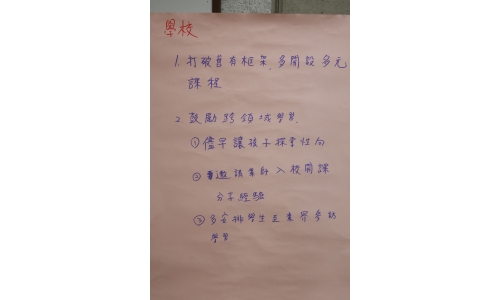 學校
1. 打破舊有框架,多開設多元
課程
2. 鼓勵跨領域學習.
① 儘早讓孩子探索性向
② 邀請業師入校開課
分享經驗
③ 多安排學生至業界參訪
學習